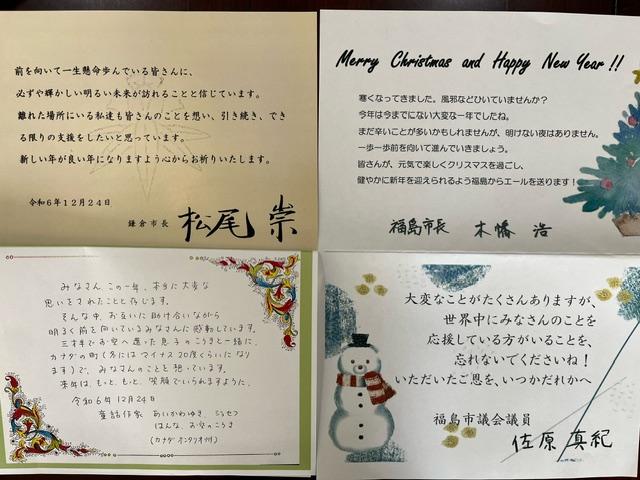 前を向いて一生懸命歩んでいる皆さんに、
必ずや輝かしい明るい未来が訪れることと信じています。
離れた場所にいる私達も皆さんのことを想い、引き続き、でき
る限りの支援をしたいと思っています。
新しい年が良い年になりますよう心からお祈りいたします。
令和6年12月24日
鎌倉市長 松尾 崇
Merry Christmas and Happy New Year!!
寒くなってきました。風邪などひいていませんか?
今年は今までにない大変な一年でしたね。
まだ辛いことが多いかもしれませんが、明けない夜はありません。
一歩一歩前を向いて進んでいきましょう。
皆さんが、元気で楽しくクリスマスを過ごし、
健やかに新年を迎えられるよう福島からエールを送ります!
福島市長 木幡 浩
みなさん この一年、本当に大変な
思いをされたことと存じます。
そんな中、お互いに助け合いながら
明るく前を向いているみなさんに感動しています。
三才半でお空へ還った息子のこうきと一緒に、
カナダの町(冬にはマイナス20度くらいになり
ます)で、みなさんのことを想っています。
来年は、もっと、もっと、笑顔でいられますように。
令和6年12月24日
童話作家 あいかわゆき、ジョセフ
はんな、お空のこうき
(カナダ オンタリオ州)
大変なことがたくさんありますが、
世界中にみなさんのことを
応援している方がいることを、
忘れないでくださいね!
いただいたご恩を、いつかだれかへ
福島市議会議員
佐原 真紀